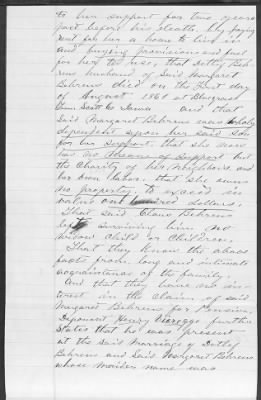 to her support for two years
past before his death, by paying
rent for her a house to live in
and buying provisions and fuel
for her to use, that Detlef Beh
rens husband of Said Margaret
Behrens died on the first day
of August 1861 at Blue Grass
Scott Co Iowa and that
Said Margaret Behrens was wholly
dependent upon her said Son
for her support, that she now
has no means of support but
the Charity of her Neighbors and
her own labor. that she owns
no property, to exceed in
value one hundred dollars,
That said Claus Behrens
left surviving him no
widow child or Children.
That they know the above
facts from long and intimate
acquaintance of the family.
And that they have no in
terest in the Claim of said
Margaret Behrens for Pension.
Deponent Henry further
States that he was present
at the Said Marriage of Detlef
Behrens and Said Margaret Behrens
whose maiden name was